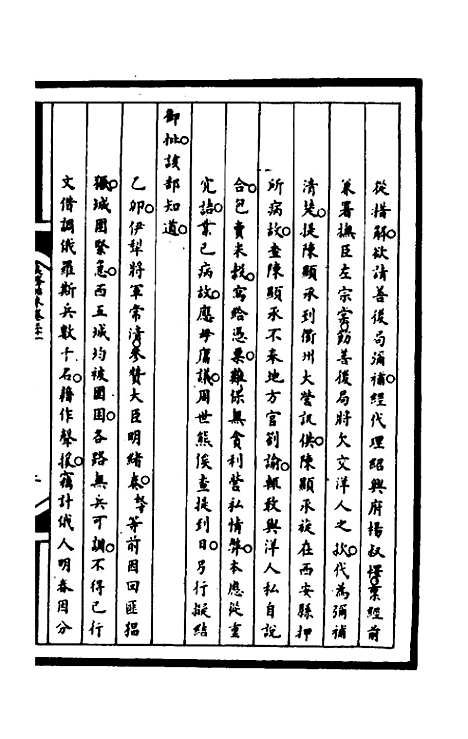 從措解欲請善後局彌補經代理紹興府楊叔懌稟經前
兼署撫臣左宗棠飭善後局將欠交洋人之款代為彌補
清楚提陳顯承到衢州大營訊供陳顯承旋在西安縣押
所病故查陳顯承不來地方官劄諭輒敢與洋人私自說
合包賣未投寫給憑票難保無貪利營私情弊本應從重
究詰業已病故應毋庸議周世熊俟查提到日另行擬結
御批該部知道
乙卯伊犁將軍常清參贊大臣明緒奏等前因回匪猖
獗城困緊急西五城均被圍困各路無兵可調不得已行
文借調俄羅斯兵數千名藉作聲援竊計俄人明春因分